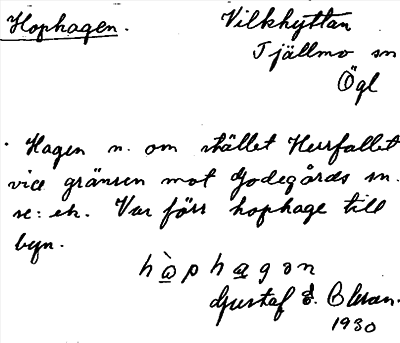 Hophagen.
Vilkhyttan
Tjällmo sn
Ögl
Hagen n. om stället Herrfallet
vid gränsen mot Godegårds sn.
se: ek. Var förr hophage till
byn.
hòphagon
Gustaf E. Olson.
1930